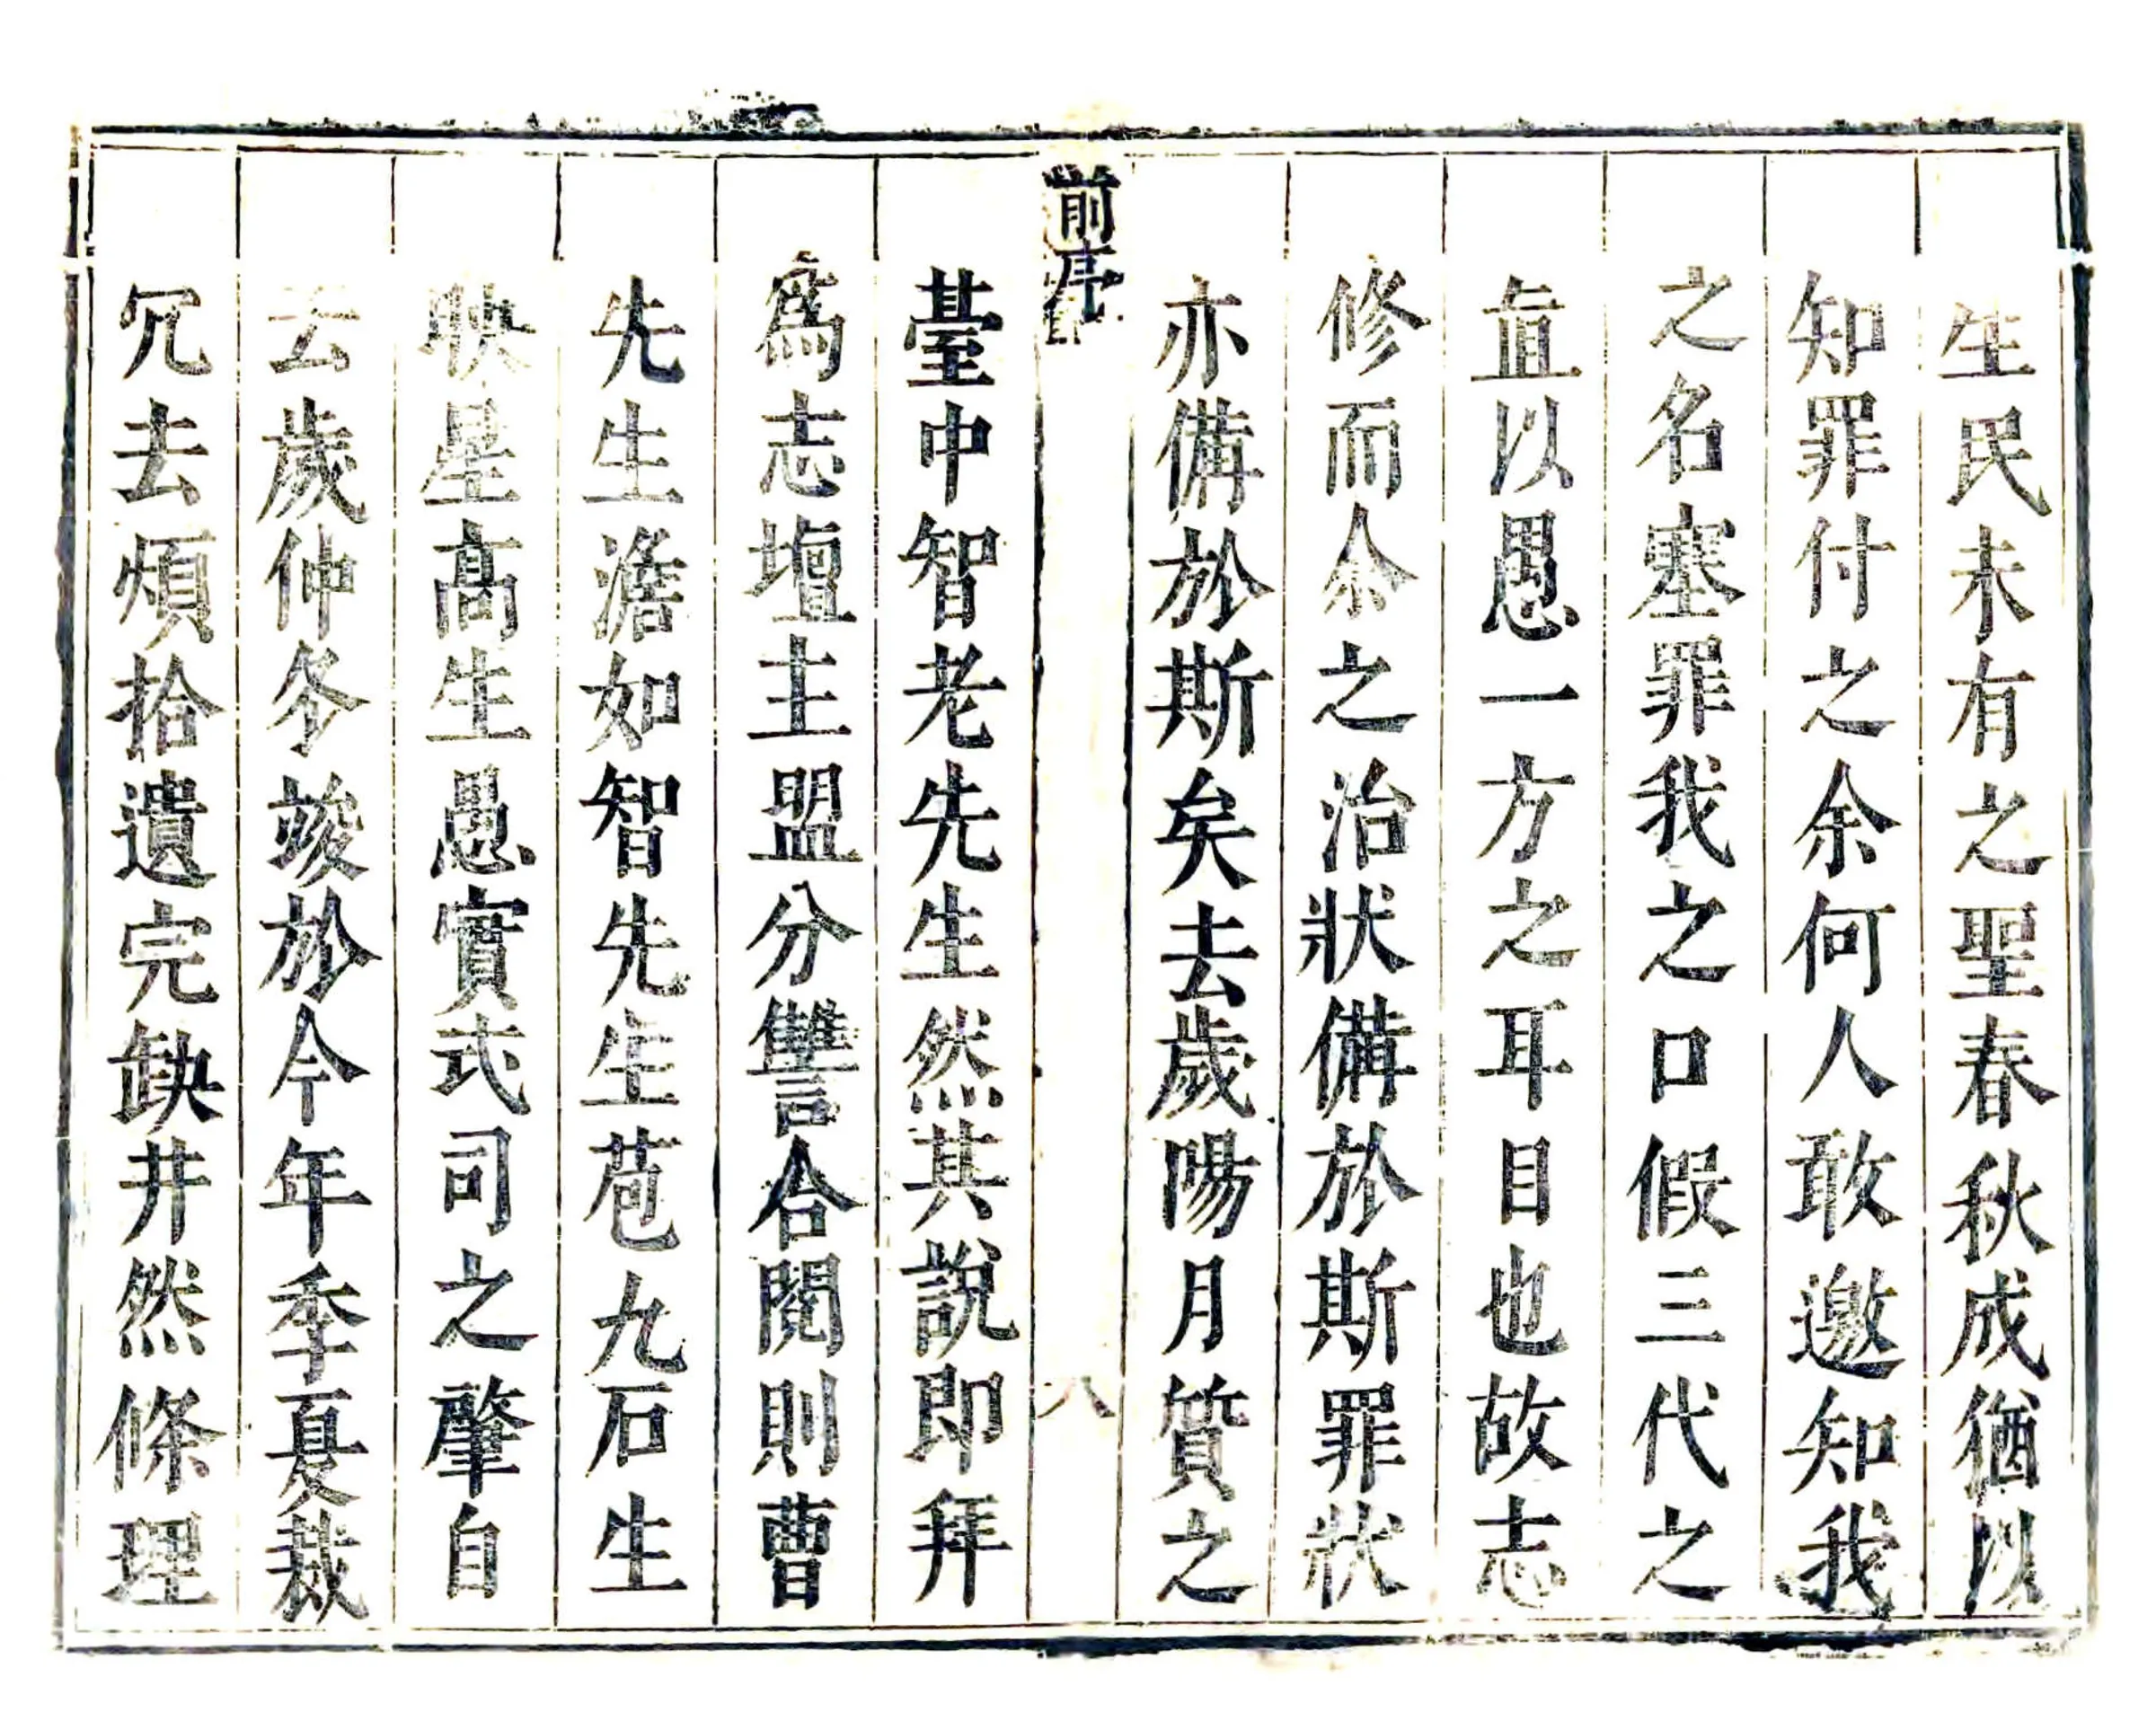 生民未有之聖春秋成猶以
知罪付之余何人敢邀知我
之名塞罪我之口假三代之
直以愚一方之耳目也故志
修而余之治狀備於斯罪狀
亦備於斯矣去歲陽月質之
前序
八
臺中智老先生然其說即拜
爲志壇主盟分讐合閱則曹
先生澹如智先生苞九石生
映星高生愚實式司之肇自
去歲仲冬竣於今年季夏裁
冗去煩拾遺完缺井然條理